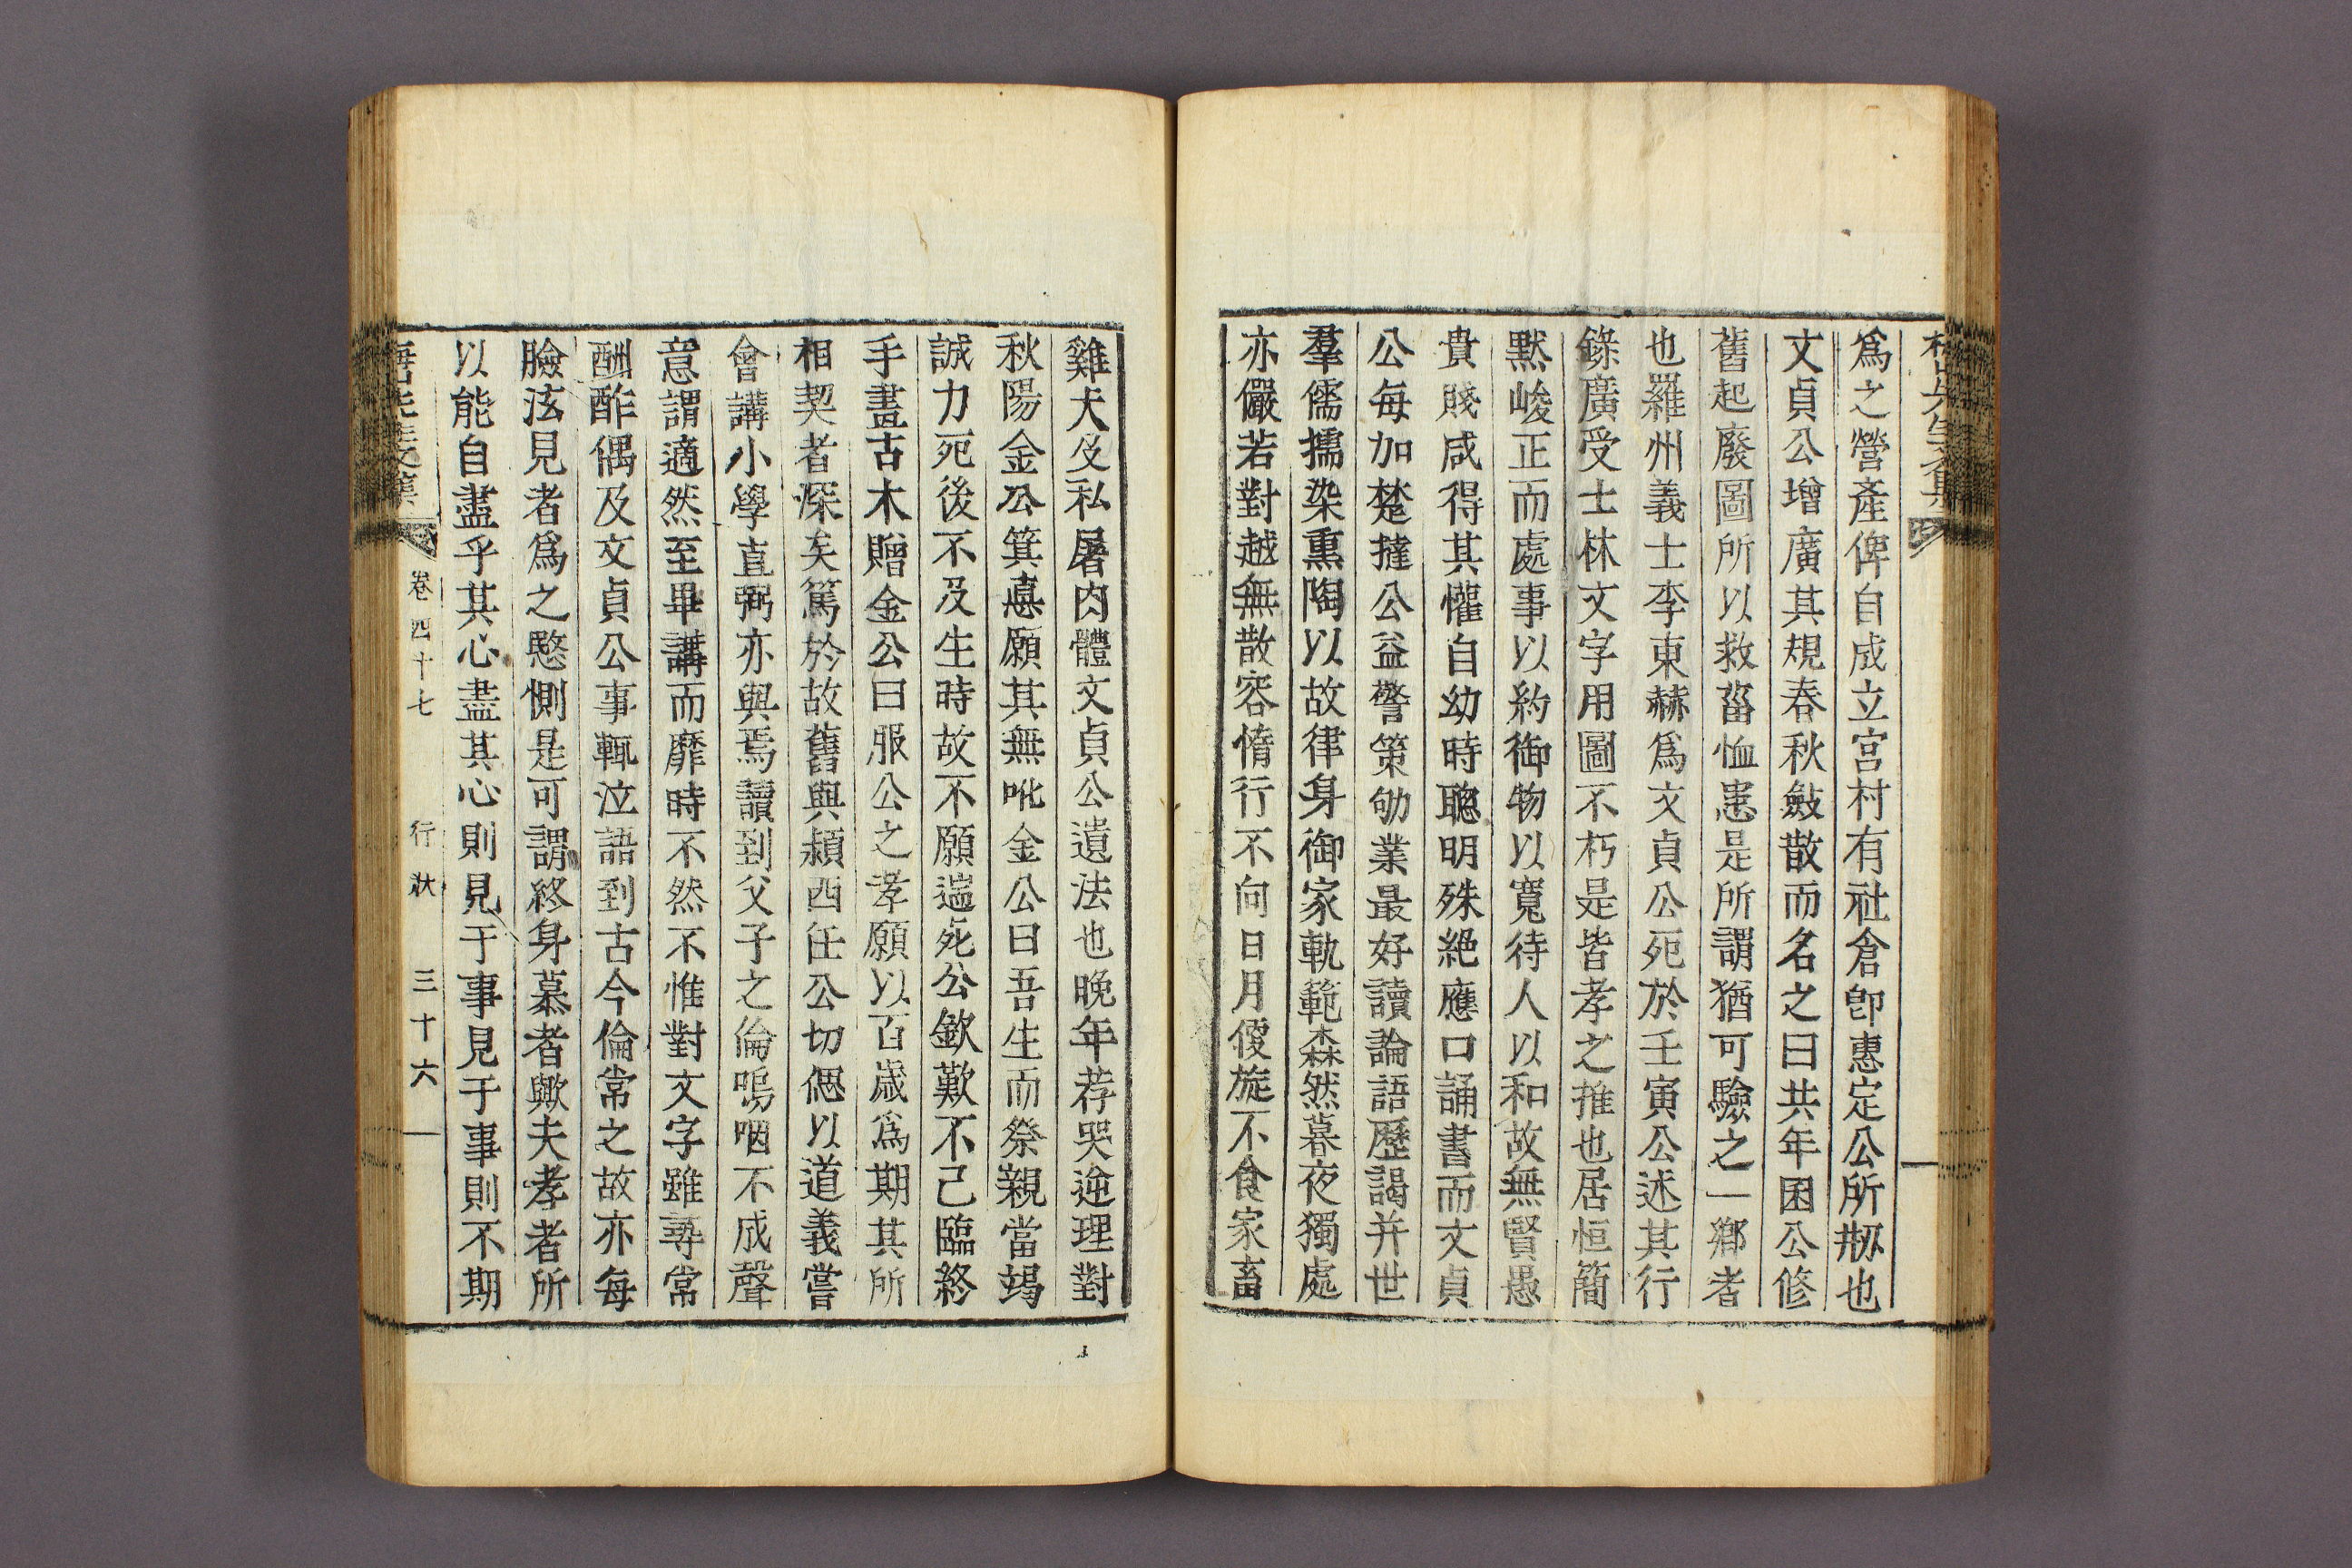 爲之營產俾自成立宮村有社倉卽惠定公所刱也
文貞公增廣其規春秋斂散而名之曰共年困公修
舊起廢圖所以救葘恤患是所謂猶可驗之一鄕者
也羅州義士李東赫爲文貞公死於壬寅公述其行
錄廣受士林文字用圖不朽是皆孝之推也居恒簡
默峻正而處事以約御物以寬待人以和故無賢愚
貴賤咸得其懽自幼時聰明殊絕應口誦書而文貞
公每加楚撻公益警策劬業最好讀論語歷謁并世
羣儒擩染熏陶以故律身御家軌範森然暮夜獨處
亦儼若對越無散容惰行不向日月傻旋不食家畜
雞犬及私屠肉體文貞公遺法也晩年荐哭逆理對
秋陽金公箕悳願其無吪金公曰吾生而祭親當竭
誠力死後不及生時故不願遄死公欽歎不已臨終
手畫古木贈金公曰服公之孝願以百歲爲期其所
相契者深矣篤於故舊與潁西任公切偲以道義嘗
會講小學直弼亦與焉讀到父子之倫嗚咽不成聲
意謂適然至畢講而靡時不然不惟對文字雖尋常
酬酢偶及文貞公事輒泣語到古今倫常之故亦每
臉泫見者爲之愍惻是可謂終身慕者歟夫孝者所
以能自盡乎其心盡其心則見于事見于事則不期
卷四十七 行狀 三十六